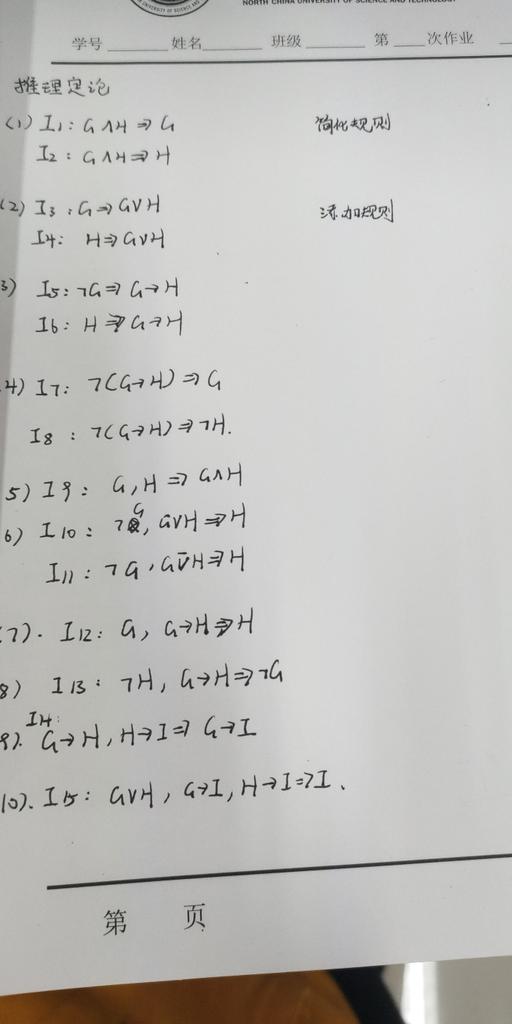 NORTH CHINA UNIVERSITY OF SCIENCE AND TECHNOLOGY
学号 姓名 班级 第 次作业
推理定论
(1) I1: G∧H ⇒ G 简化规则
I2: G∧H ⇒ H
(2) I3: G ⇒ G∨H 添加规则
I4: H ⇒ G∨H
3) I5: ¬G ⇒ G→H
I6: H ⇒ G→H
4) I7: ¬(G→H) ⇒ G
I8: ¬(G→H) ⇒ ¬H.
5) I9: G, H ⇒ G∧H
6) I10: ¬G, G∨H ⇒ H
I11: ¬G, G⊽H ⇒ H
(7). I12: G, G→H ⇒ H
8) I13: ¬H, G→H ⇒ ¬G
I14:
9). G→H, H→I ⇒ G→I
10). I15: G∨H, G→I, H→I ⇒ I.
第 页